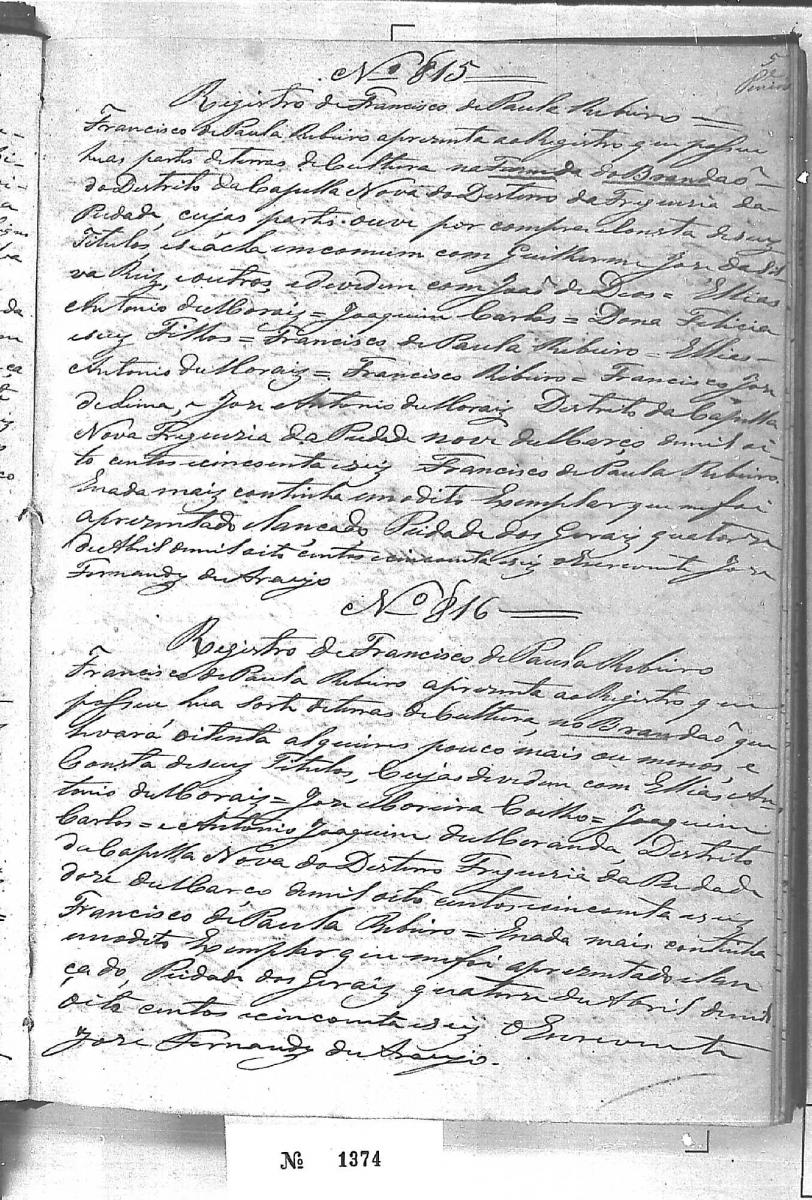 Nº 815
Registro de Francisco de Paula Ribeiro
Francisco de Paula Ribeiro aprezenta ao Registro que possue
huas partes de terras de Cultura na Fazenda do Brandaõ
do Destrito da Capella Nova do Desterro da Freguezia da
Piedade, cujas partes ouve por compra e Consta de seuz
Titulos, e se ácha em comum com Guilherme Joze da Sil
va Ruiz, e outros, e devidem com Joaõ de Deos = Ellias
Antonio de Moraiz = Joaquim Carlos = Dona Felicia
e seuz Filhos = Francisco de Paula Ribeiro = Ellias
Antonio de Moraiz = Francisco Ribeiro = Francisco Joze
de Lima, e Joze Antonio de Moraiz Destrito da Capella
Nova Freguezia da Piedade nove de Março de mil oi
to centos e cincoenta e seiz Francisco de Paula Ribeiro.
E nada maiz continha em o dito Exemplar que me foi
aprezentado e lançado Piedade dos Geraiz quatorze
de Abril de mil oito centos e cincoenta e seiz o Escrevente Joze
Fernandez de Araujo
Nº 816
Registro de Francisco de Paula Ribeiro
Francisco de Paula Ribeiro aprezenta ao Registro que
possue hua sorte de terras de Cultura, no Brandaõ que
levará oitenta alqueires pouco mais ou menos, e
Consta de seuz Titulos, Cujas devidem com Ellias An
tonio de Moraiz = Joze Moreira Coelho = Joaquim
Carlos = e Antonio Joaquim de Moranda, Destrito
da Capella Nova do Desterro Freguezia da Piedade
doze de Março de mil oito centos e cincoenta e seiz
Francisco de Paula Ribeiro = E nada mais continha
em o dito Exemplar que me foi aprezentado e lan
çado, Piedade dos Geraiz quatorze de Abril de mil
oito centos e cincoenta e seiz O Escrevente
Joze Fernandez de Araujo.
Nº 1374